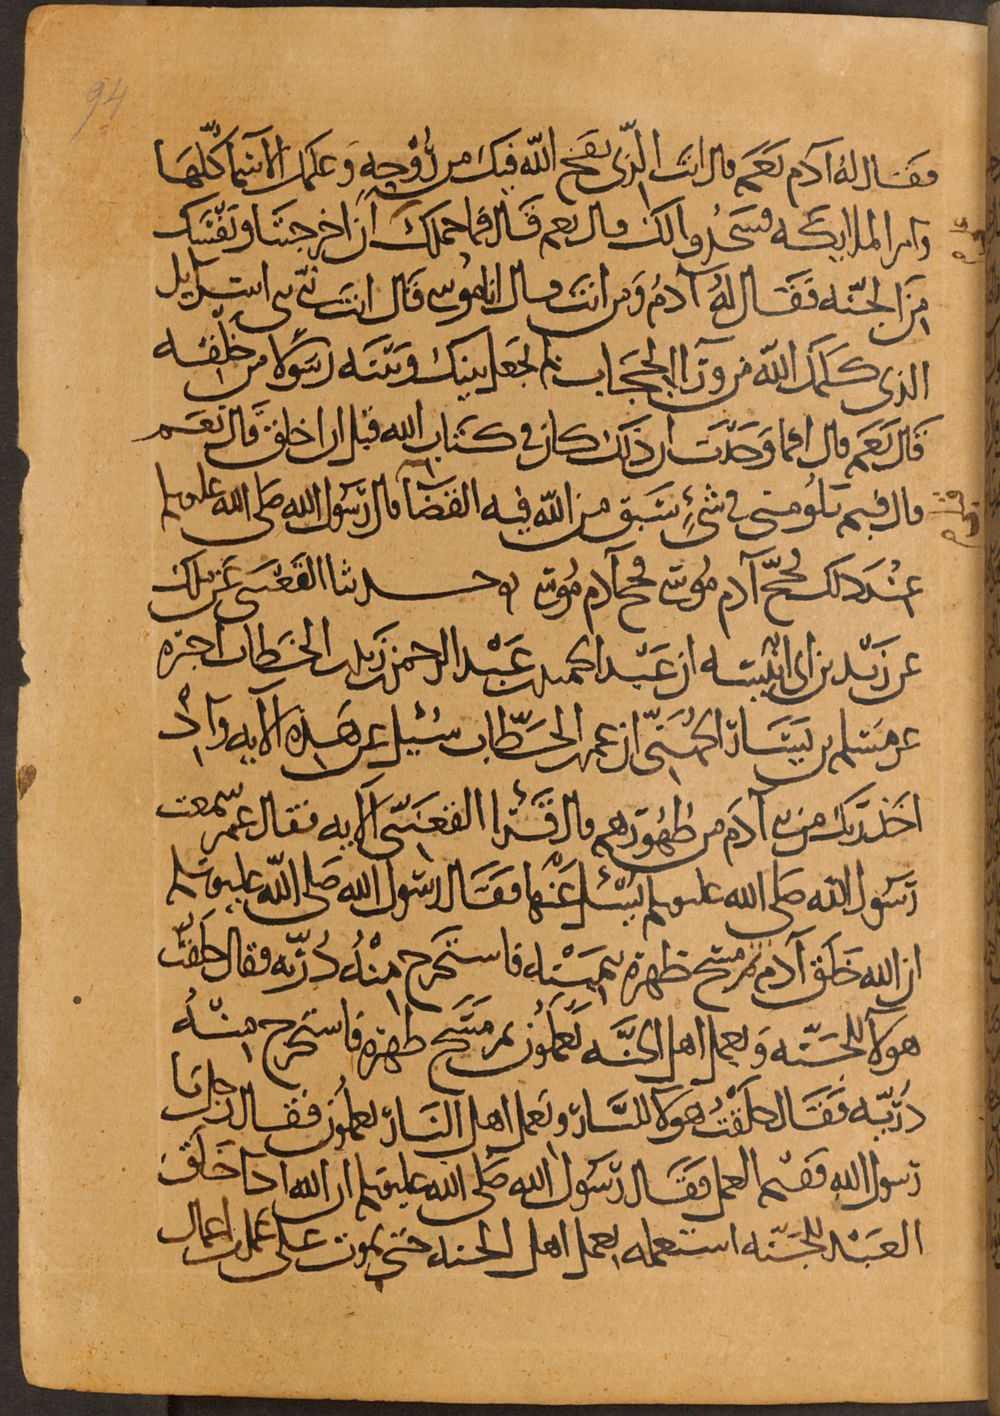 94
فقال له آدم نعم قال انت الذي نفخ الله فيك من روحه وعلمك الاسما كلها
وامر الملايكه فسجدوا لك قال نعم قال فما حملك ان اخرجتنا ونفسك
من الجنه فقال له آدم ومن انت قال انا موسى قال انت نبي بني اسرايل
الذي كلمك الله من ورآ الحجاب لم يجعل بينك وبينه رسولا من خلقه
قال نعم قال افما وجدت ان ذلك كان في كتاب الله قبل ان اخلق قال نعم
قال فبم تلومني في شئ سبق من الله فيه القضآ قال رسول الله صلى الله عليه وسلم
عند ذلك فحج آدم موسى فحج آدم موسى حدثنا القعنبى عن ملك
عن زيد بن ابي انيسه ان عبد الحميد بن عبد الرحمن بن زيد بن الخطاب اخبره
عن مسلم بن يسار الجهني ان عمر بن الخطاب سئيل عن هذه الآيه واذ
اخذ ربك من بني آدم من ظهورهم قال قرأ القعنبي الآيه فقال عمر سمعت
رسول الله صلى الله عليه وسلم يسئل عنها فقال رسول الله صلى الله عليه وسلم
ان الله خلق آدم ثم مسح ظهره بيمينه فاستخرج منه ذريه فقال خلقت
هولآ للجنه وبعمل اهل الجنه يعملون ثم مسح ظهره فاستخرج منه
ذريه فقال خلقت هولآ للنار وبعمل اهل النار يعملون فقال رجل يا
رسول الله ففيم العمل فقال رسول الله صلى الله عليه وسلم ان الله اذا خلق
العبد للجنه استعمله بعمل اهل الجنه حتى يموت على عمل من اعمال